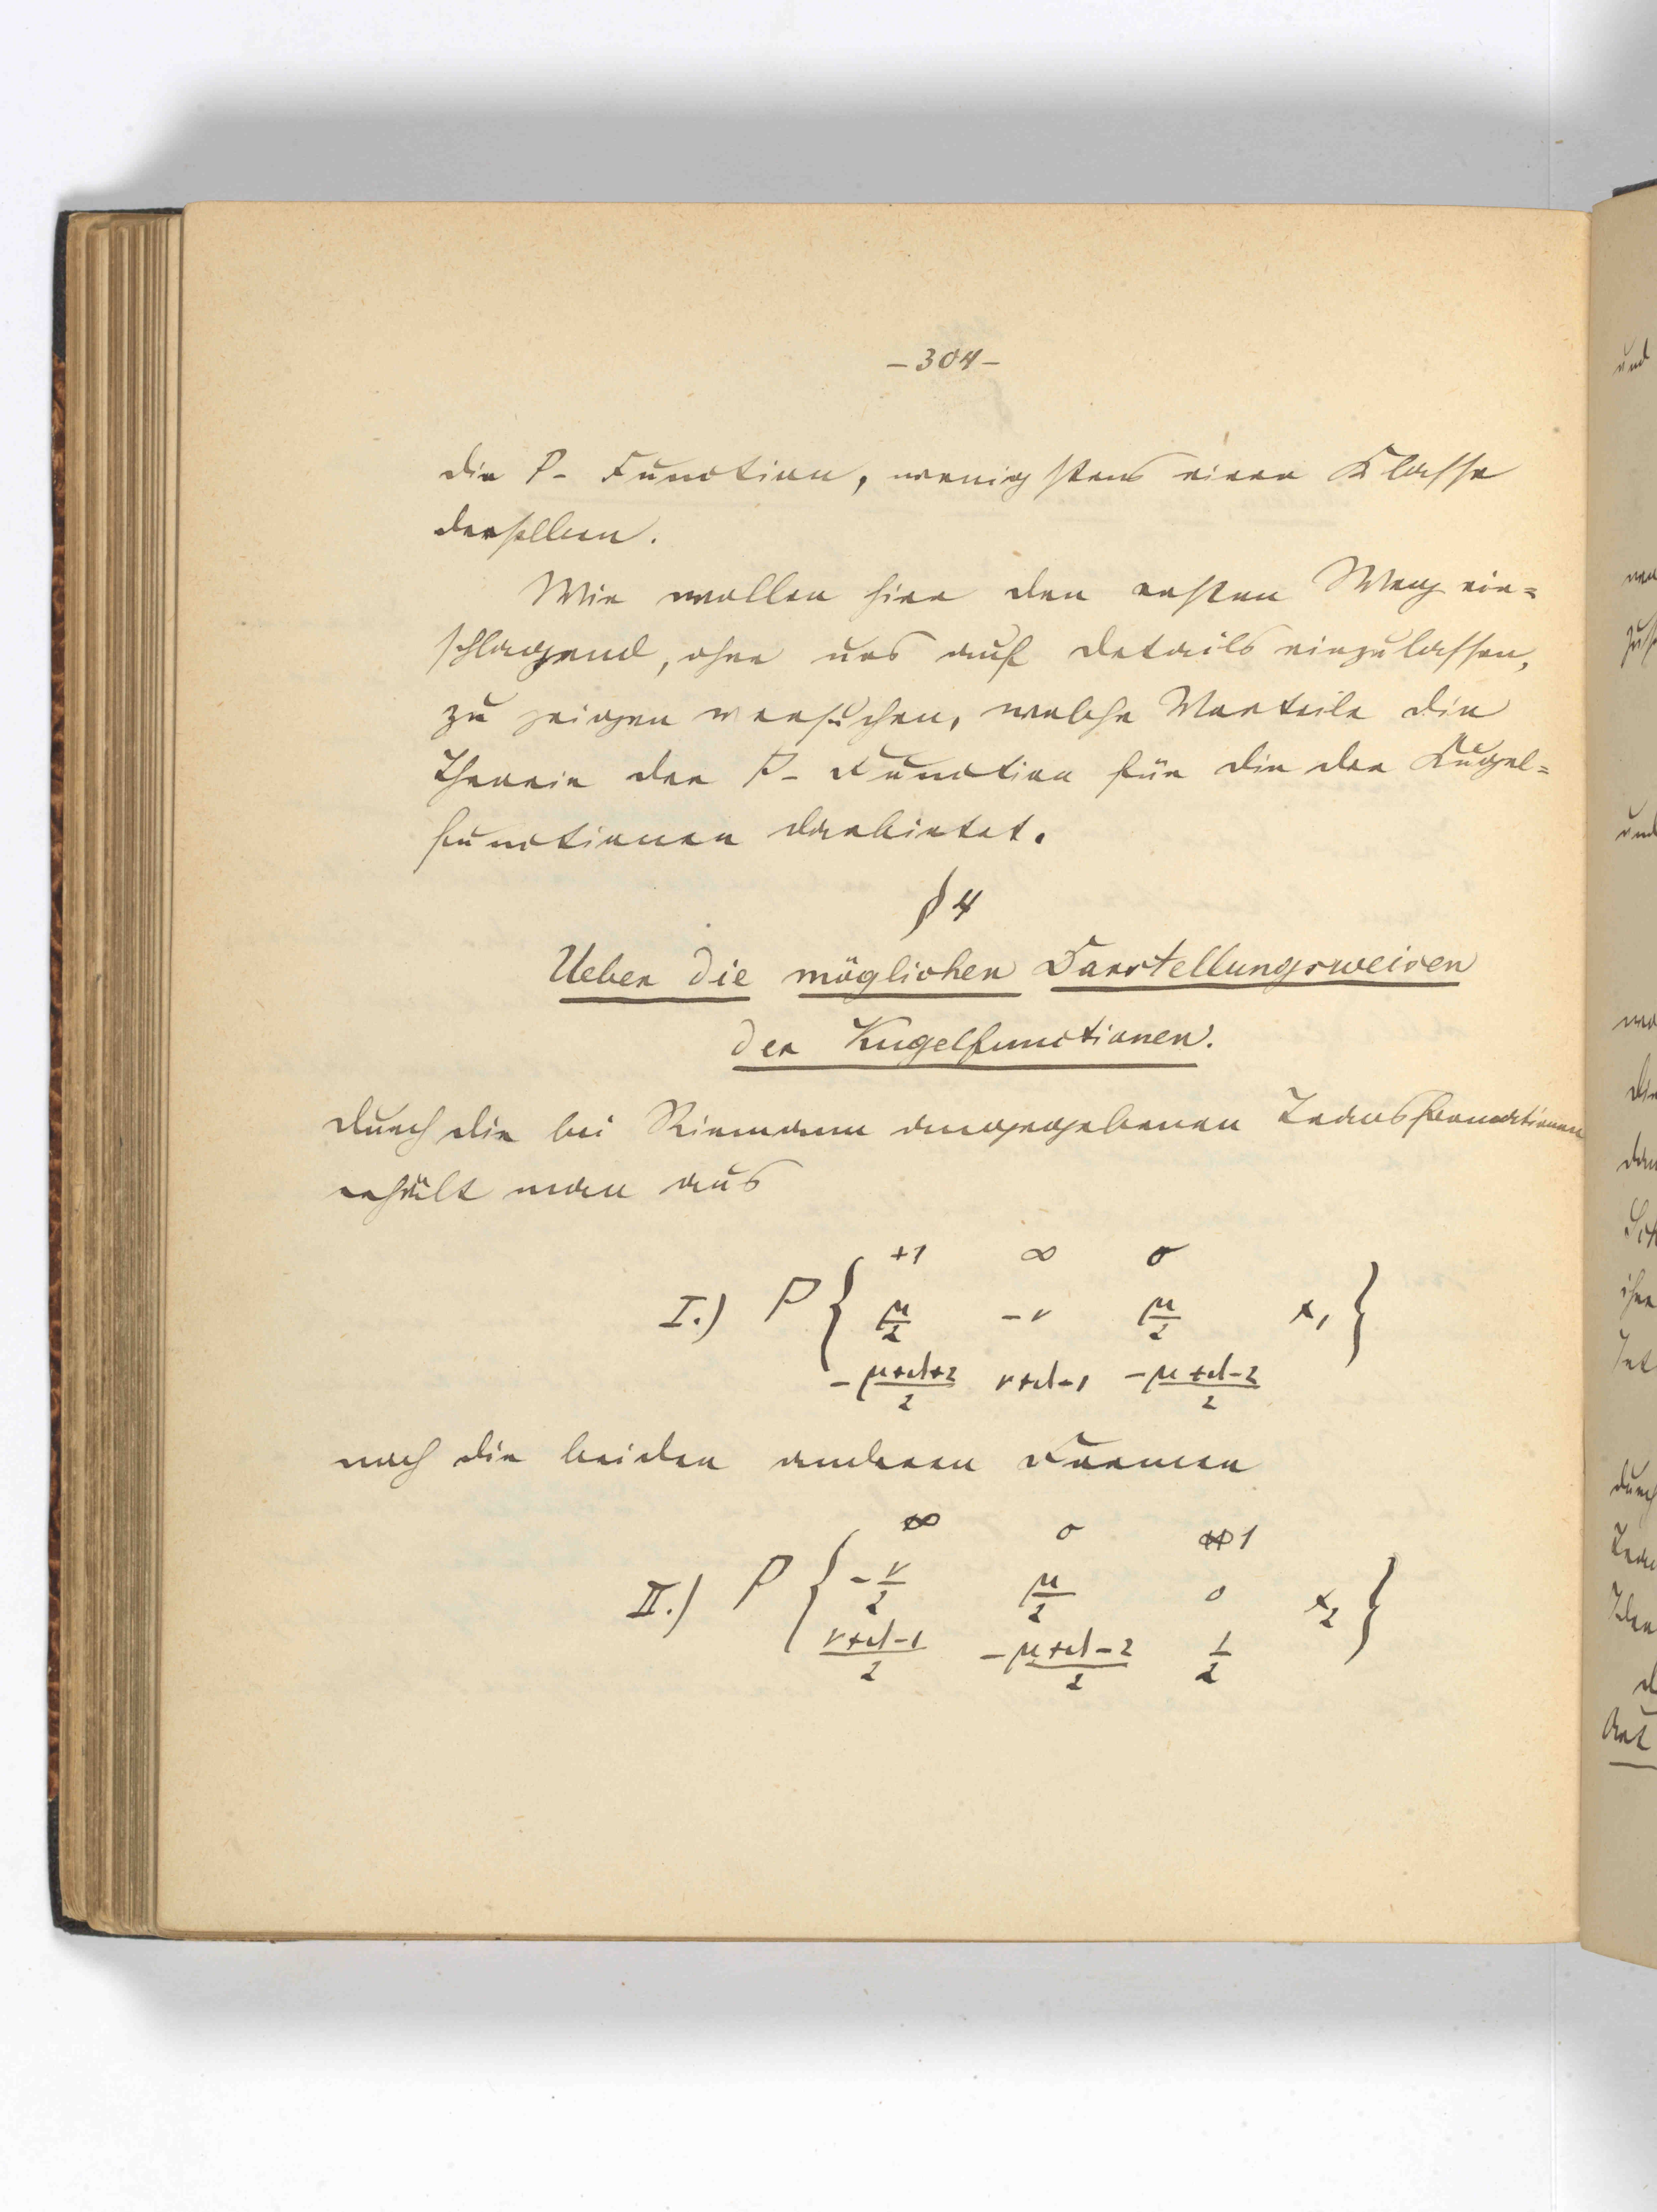 – 304 –
die P- Function, wenigstens einer Klasse
derselben.
Wir wollen hier den ersten Weg ein=
schlagend, ohne uns auf Details einzulassen,
zu zeigen versuchen, welche Vorteile die
Theorie der P- Function für die der Kugel=
functionen darbietet.
§ 4
Ueber die möglichen Darstellungsweisen
der Kugelfunctionen.
Durch die bei Riemann angegebenen Transformationen
erhält man aus
+1 ∞ 0
I.) P { μ/2 -ν μ/2 x₁ }
-(μ+d+2)/2 ν+d-1 -(μ+d-2)/2
noch die beiden anderen Formen
∞ 0 1
II.) P { -ν/2 μ/2 0 x₂ }
(ν+d-1)/2 -(μ+d-2)/2 1/2
und
und